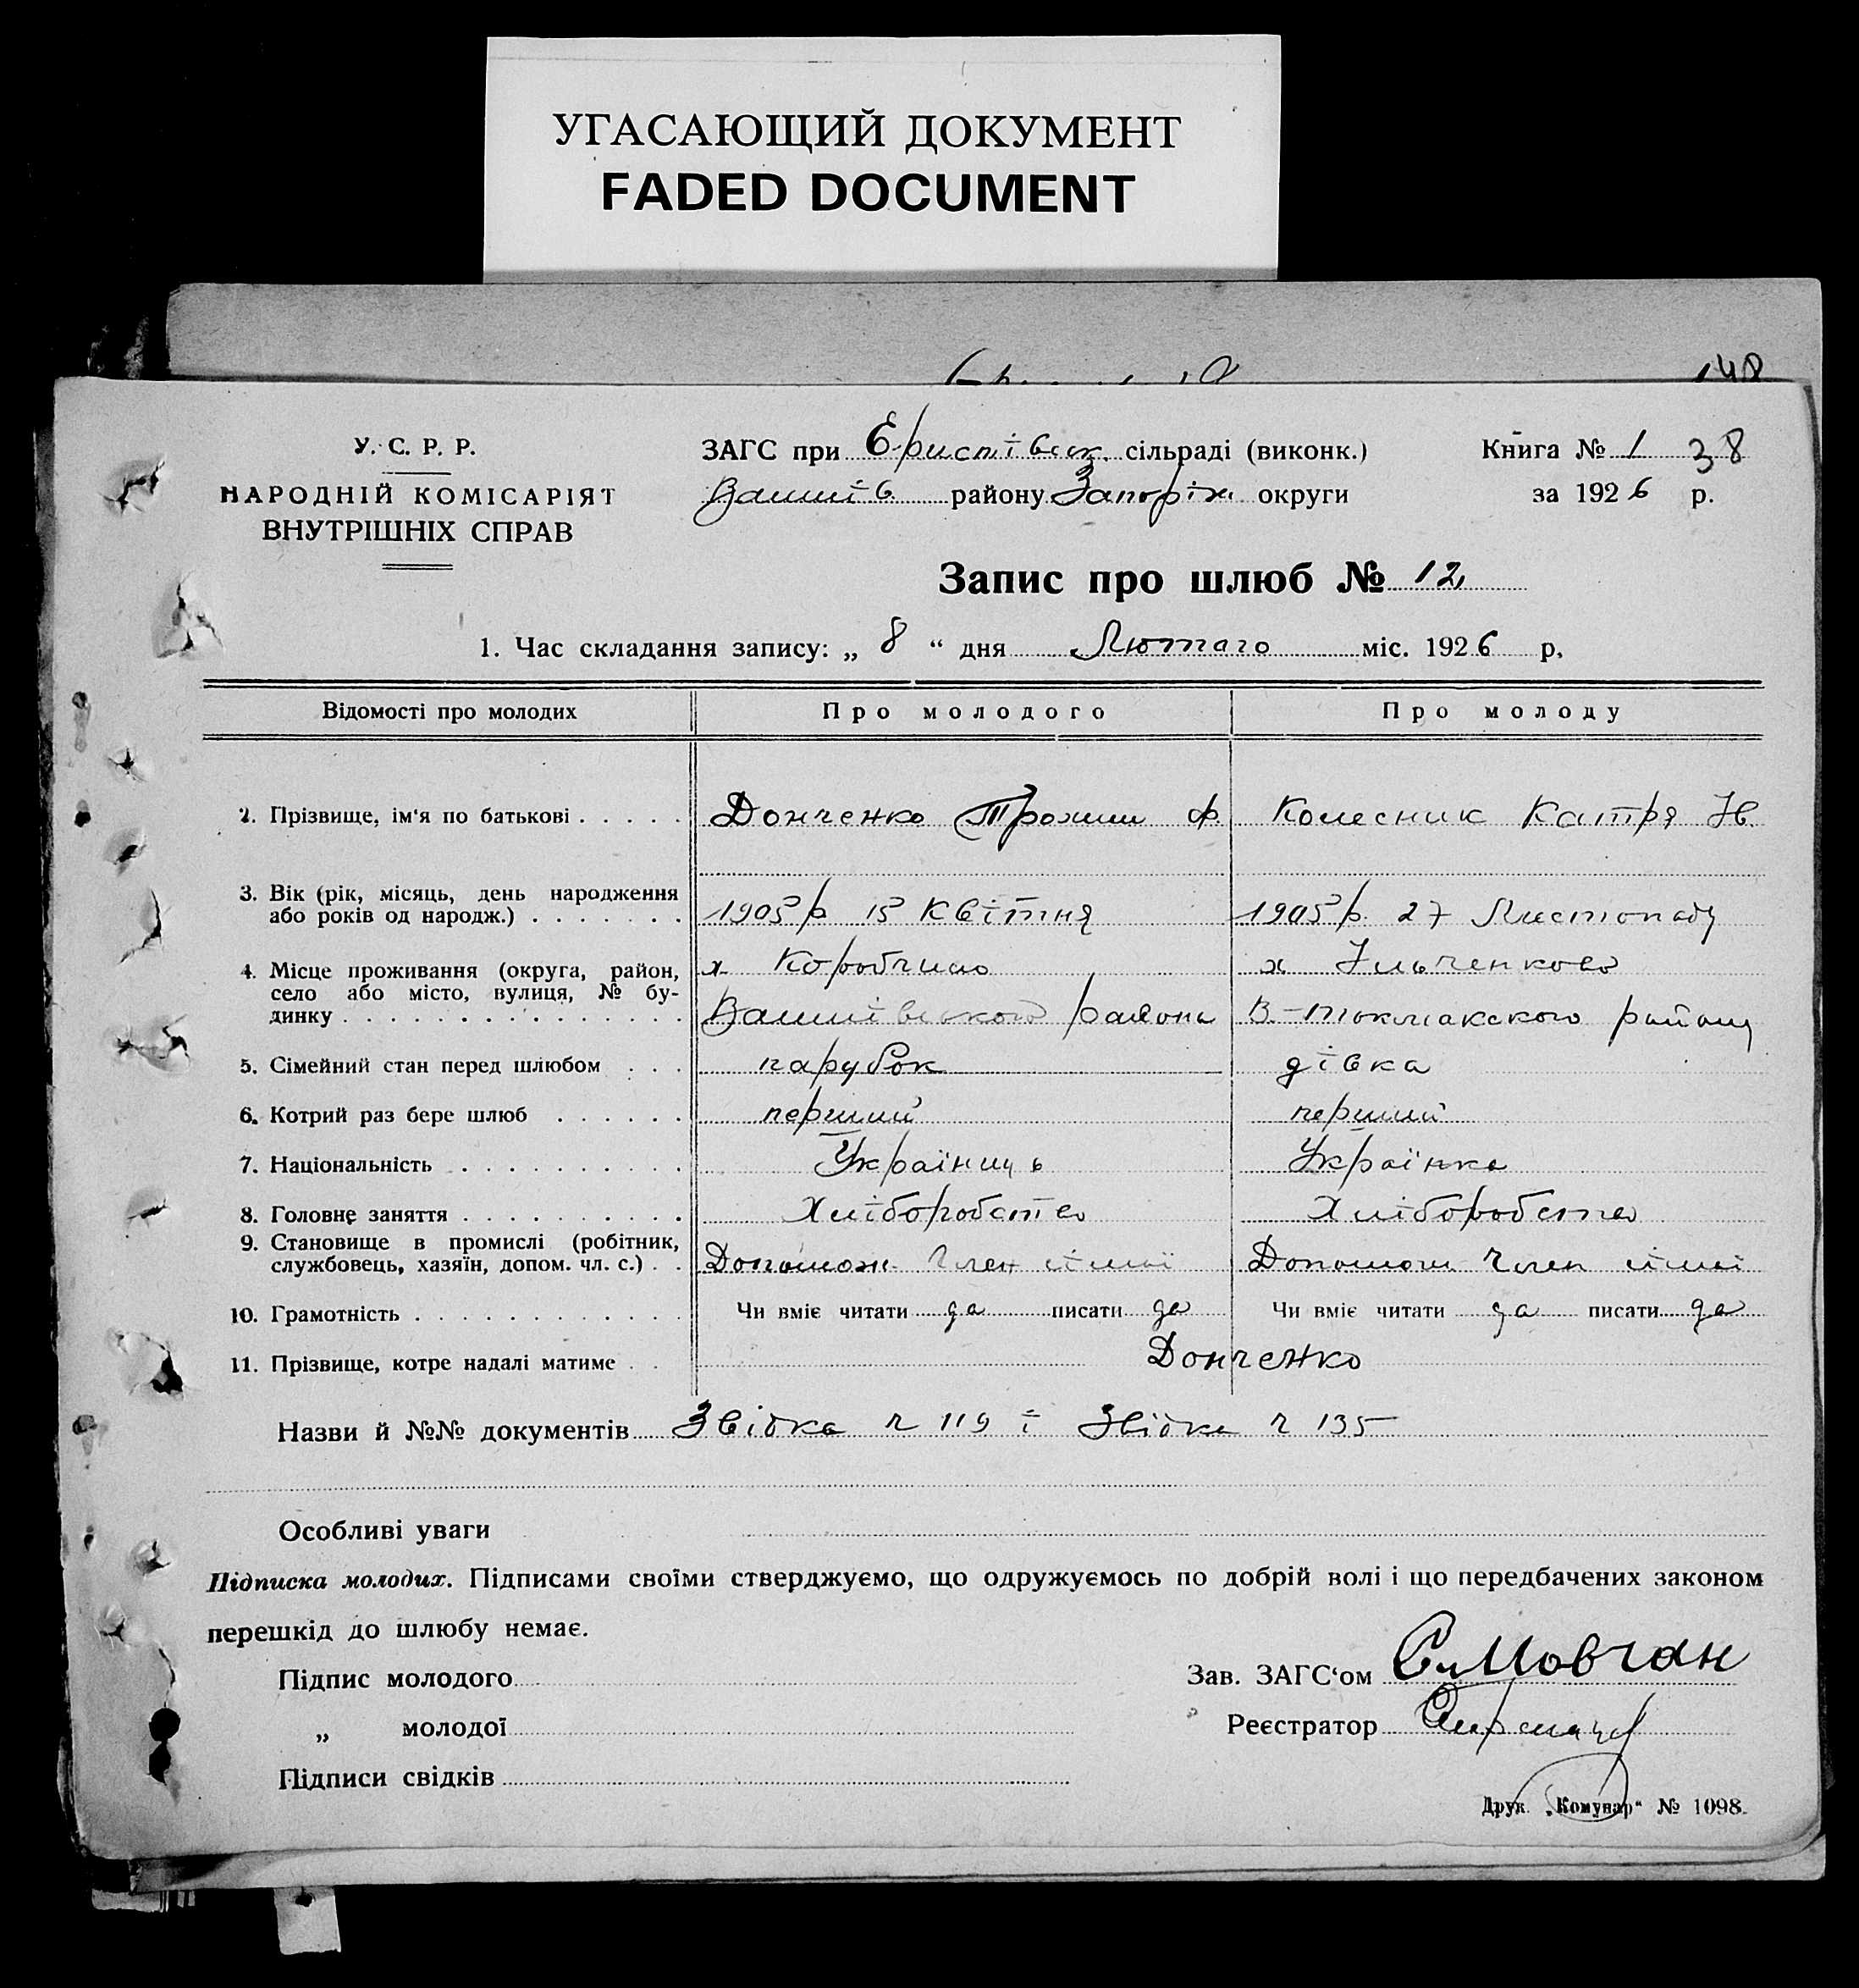 УГАСАЮЩИЙ ДОКУМЕНТ
FADED DOCUMENT
148
У. С. Р. Р.
НАРОДНІЙ КОМІСАРІЯТ
ВНУТРІШНІХ СПРАВ
ЗАГС при Єристівськ. сільраді (виконк.)
району Запоріж округи
Книга № 1 38
за 1926 р.
Запис про шлюб № 12
1. Час складання запису: „ 8 “ дня Лютого міс. 1926 р.
Відомості про молодих Про молодого Про молоду
2. Прізвище, ім'я по батькові . . . . . Донченко Трохим Ф. Колесник Катря Ів.
3. Вік (рік, місяць, день народження
або років од народж.) . . . . . . . 1905 р 15 Квітня 1905 р. 27 Листопаду
4. Місце проживання (округа, район,
село або місто, вулиця, № бу-
динку . . . . . . . . . . . . . . .
х Коробчино
району
х Ільченково
В.-Токмакского району
5. Сімейний стан перед шлюбом . . . парубок дівка
6. Котрий раз бере шлюб . . . . . . перший перший
7. Національність . . . . . . . . . . Українець Українка
8. Головне заняття . . . . . . . . . . Хліборобство Хліборобство
9. Становище в промислі (робітник,
службовець, хазяїн, допом. чл. с.) . . Допомож. Член сімьї Допомож Член сімьї
10. Грамотність . . . . . . . . . . . . Чи вміє читати да писати да Чи вміє читати да писати да
11. Прізвище, котре надалі матиме . . Донченко
Назви й №№ документів Звідка ч 119 і Звідка ч 135
Особливі уваги
Підписка молодих. Підписами своїми стверджуємо, що одружуємось по добрій волі і що передбачених законом
перешкід до шлюбу немає.
Підпис молодого
„ молодої
Підписи свідків
Зав. ЗАГС'ом Мовчан
Реєстратор
Друк. „Комунар“ № 1098.